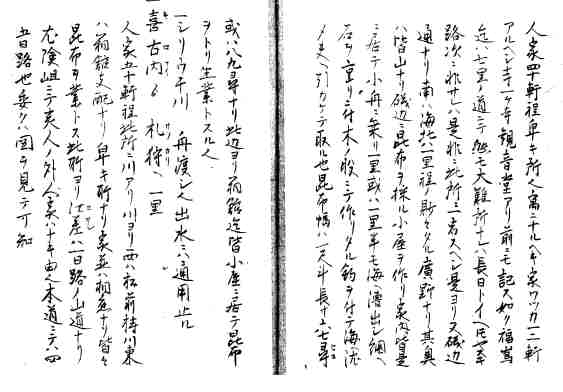 人家四十軒程卑キ所ヘ寓ニナルヘキ家ワツカ一二軒
アルヘシ寺一ケ寺観音堂アリ前ニモ記ス如ク福嶌
迄ハ七里ノ道ニテ然モ大難所ナレハ長日トイヘトモ
路次ニ非サレハ是非ニ此所ニ一宿スヘシ是ヨリ又磯辺
通ナリ南ハ海北ハ一里程タル廣野ナリ其奥
ハ皆山ナリ磯辺ニ昆布ヲ採ル小屋ヲ作リ家内皆是
ニ居テ小舟ニ乗リ一里或ハ一里半モ海ヘ漕出シ綱ヘ
石ヲ重リニ付木ノ股ニテ作リタル釣ヲ付テ海底
ヘ引カケテ取ル也昆布幅ハ一尺斗長サ六七尋
或ハ八九尋ナリ此辺ヨリ箱館迄皆小屋ニ居テ昆布
ヲトリ生業トスル也
一シリウチ川 舟渡シ也出水ニハ通用止ル
一喜古内ゟ 札狩ヘ 一里
人家五十軒程此所ニ川アリ川ヨリ西ハ松前持川東
ハ箱館支配ナリ卑キ所ナリ家並ハ相応ナリ皆々
昆布ヲ業トス此所ヨリ江差ヘハ一日路ノ山道ナリ
尤険岨ニテ夷人ノ外人家ハナキ由也本道ニテハ四
五日路也委クハ図ヲ見テ可知